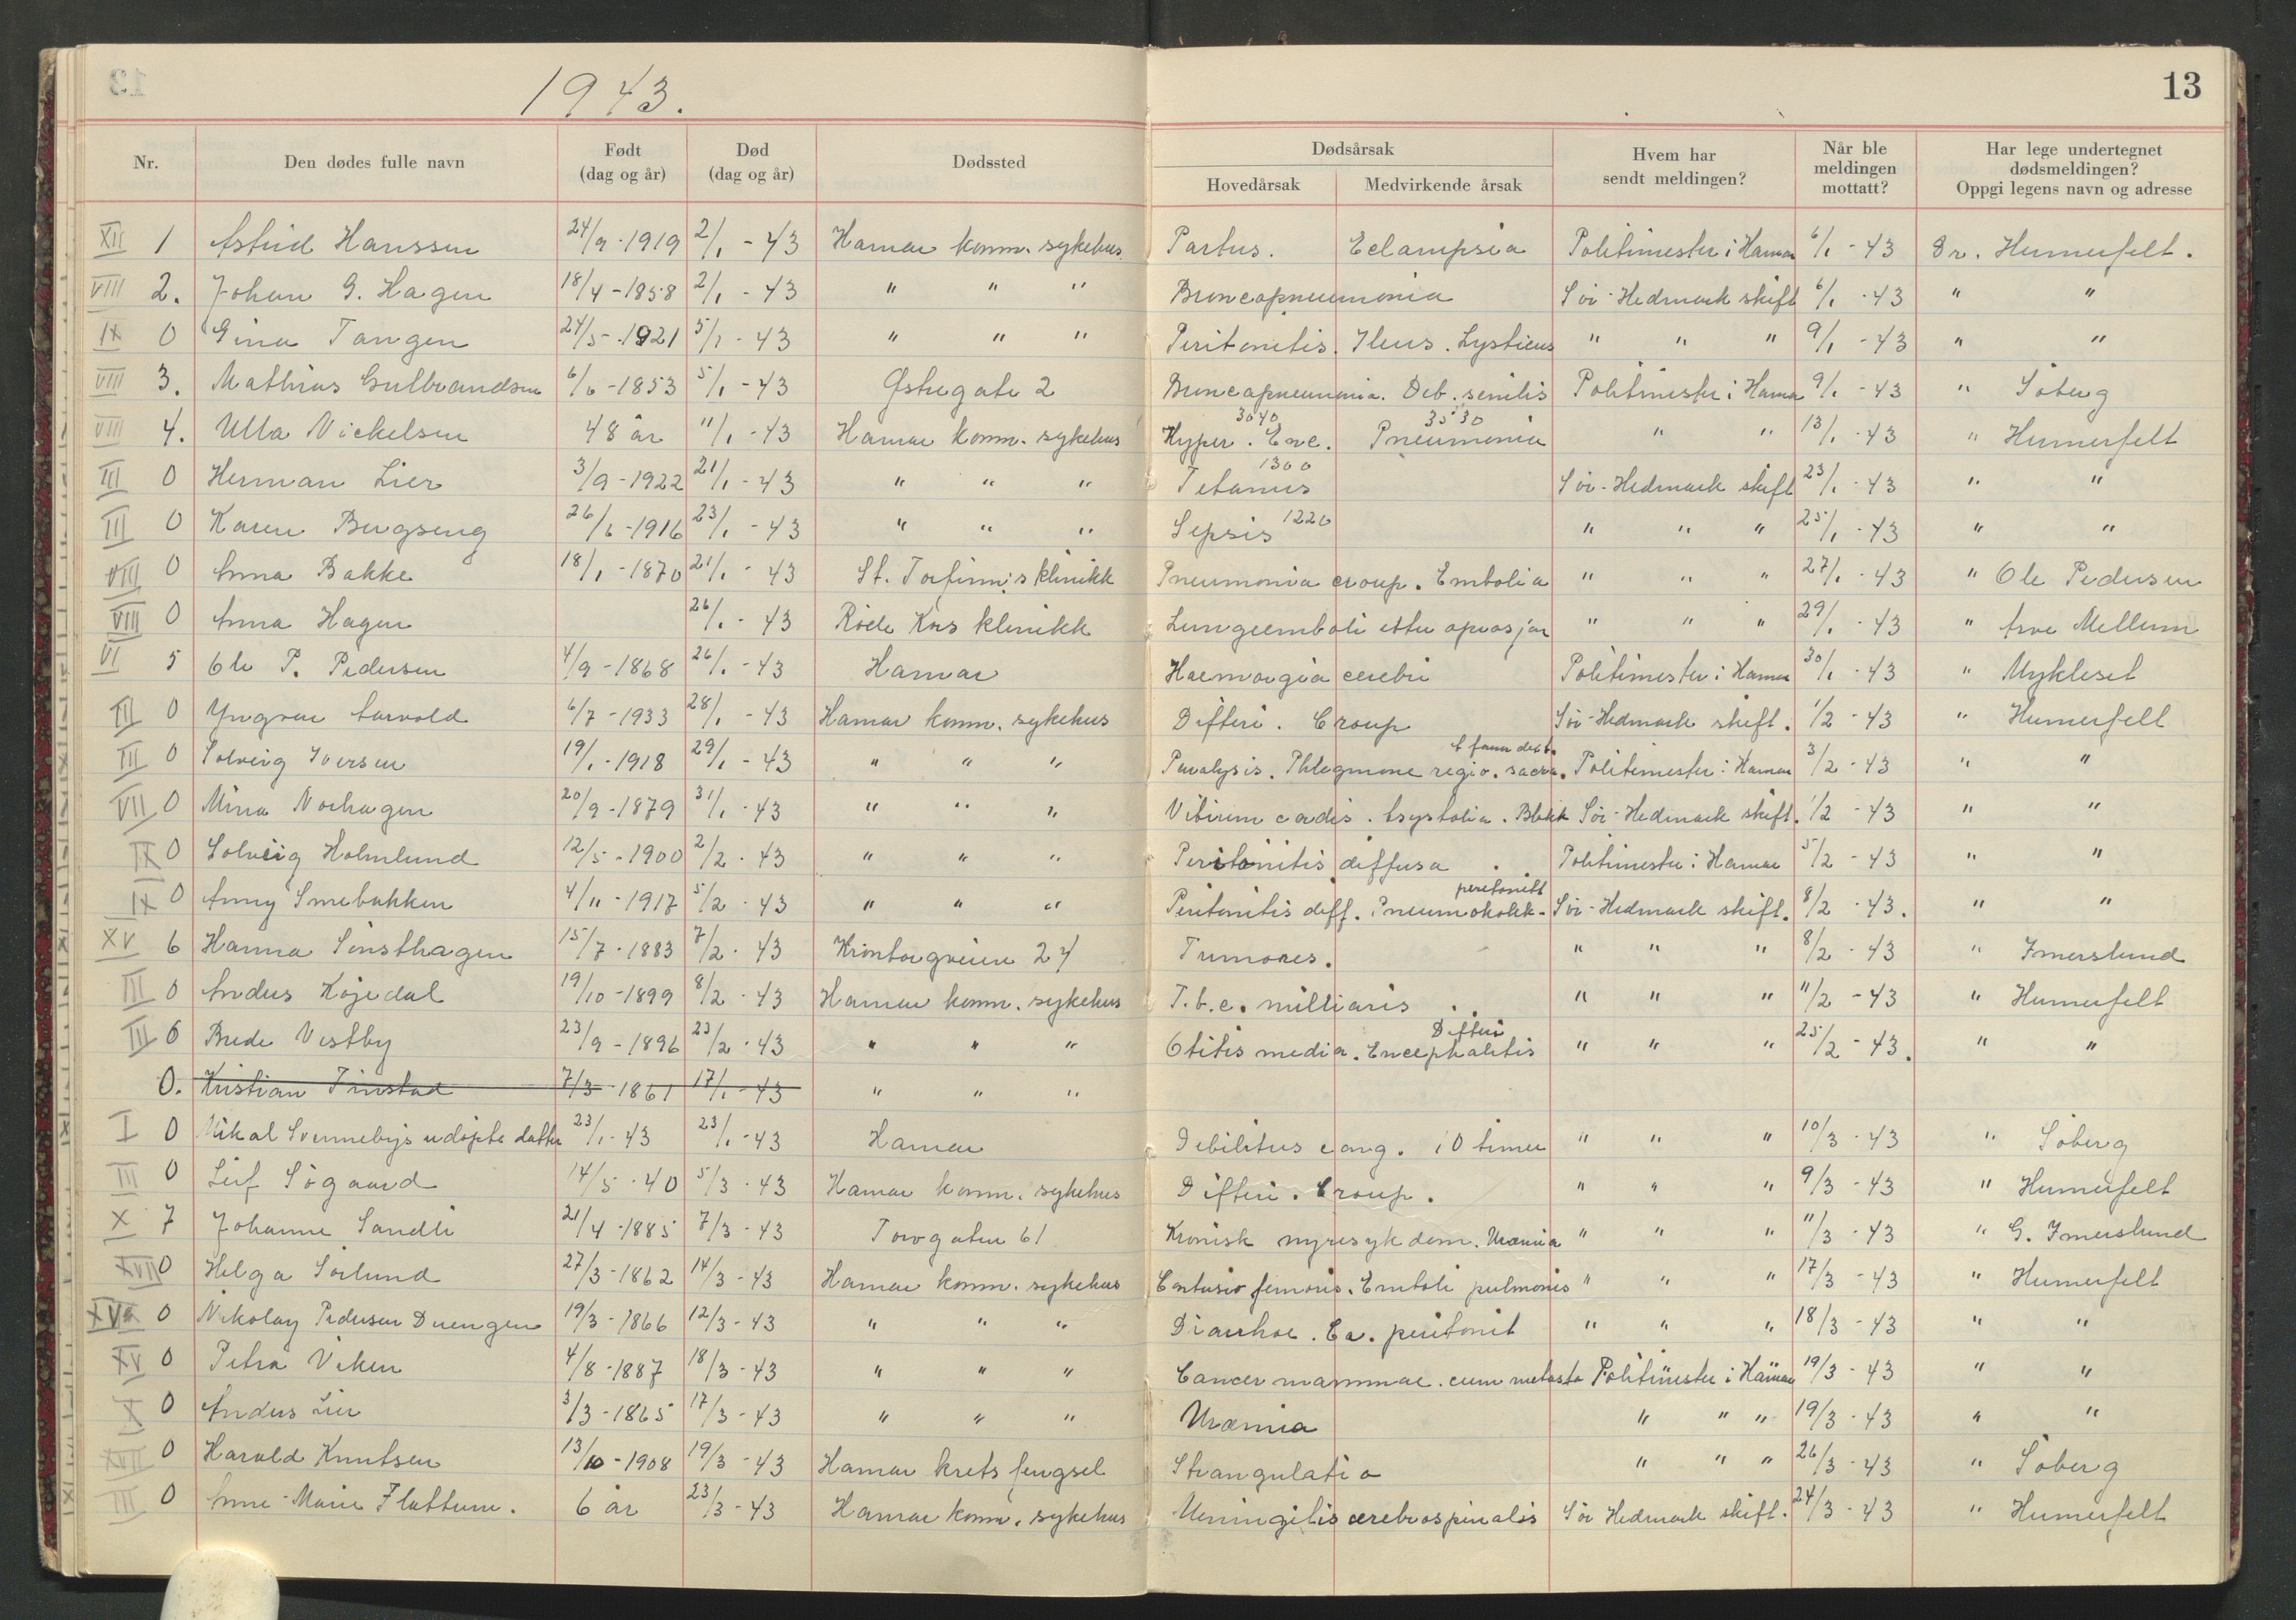 1943.
13
Nr. Den dødes fulle navn Født (dag og år) Død (dag og år) Dødssted Dødsårsak Hovedårsak Medvirkende årsak Hvem har sendt meldingen? Når ble meldingen mottatt? Har lege undertegnet dødsmeldingen? Oppgi legens navn og adresse
XII 1 Astrid Hanssen 24/9-1919 2/1-43 Hamar komm. sykehus. Partus. Eclampsia Politimester i Hamar 6/1-43 Dr. Humerfelt.
VIII 2. Johan G. Hagen 18/4-1858 2/1-43 " " " Broncopneumonia Sör-Hedmark skift 6/1-43 " "
IX 0 Gina Tangen 24/5-1921 5/1-43 " " " Peritonitis. Ileus. Lysticus " " " 9/1-43 " "
VIII 3. Mathias Gulbrandsen 6/6-1853 5/1-43 Østregate 2 Broncopneumonia. Deb. senilis Politimester i Hamar 9/1-43 " Söberg
VIII 4. Ulla Nickelsen 48 år 11/1-43 Hamar komm. sykehus Hyper. Enc. 3040 Pneumonia 3530 " " 13/1-43 " Humerfelt
III 0 Herman Lier 3/9-1922 21/1-43 " " " Tetanus 1300 Sör-Hedmark skift 23/1-43 " "
III 0 Karen Bergseng 26/6-1916 23/1-43 " " " Sepsis 1220 " " " 25/1-43 " "
VIII 0 Anna Bakke 18/1-1870 21/1-43 St. Torfinn's klinikk Pneumonia croup. Embolia " " " 27/1-43 " Ole Pedersen
VIII 0 Anna Hagen 26/1-43 Röde Kors klinikk Lungeemboli etter oprasjon " " " 29/1-43 " Arve Mellum
VI 5 Ole P. Pedersen 4/9-1868 26/1-43 Hamar Haemorgia cerebri Politimester i Hamar 30/1-43 " Mykleset
III 0 Yngvar Aarvold 6/7-1933 28/1-43 Hamar komm. sykehus Difteri. Croup Sör-Hedmark skift. 1/2-43 " Humerfelt
III 0 Solveig Iversen 19/1-1918 29/1-43 " " " Paralysis. Phlegmone regio. sacra. Politimester i Hamar 3/2-43 " "
VII 0 Mina Norhagen 20/9-1879 31/1-43 " " " Vitium cordis. Asystolia. Blokk Sör-Hedmark skift. 1/2-43 " "
IX 0 Solveig Holmlund 12/5-1900 2/2-43 " " " Peritonitis diffusa. Politimester i Hamar 5/2-43 " "
IX 0 Anny Smebakken 4/11-1917 5/2-43 " " " Peritonitis diff. Pneumokokk-peretonitt Sör-Hedmark skift. 8/2-43. " "
XV 6 Hanna Sinsthagen 15/7-1883 7/2-43 Krönborgveien 24 Tumores. " " " 8/2-43 " Imerslund
III 0 Anders Köjedal 19/10-1899 8/2-43 Hamar komm. sykehus T.b.c. milliaris. " " " 11/2-43 " Humerfelt
III 0 Brede Vestby 23/9-1896 23/2-43 " " " Otitis media. Encephalitis Difteri " " " 25/2-43. " "
0. Kristian Finstad 7/3-1861 17/1-43 " " "
I 0 Mikal Svennebys udöpte datter 23/1-43 23/1-43 Hamar Debilitus cong. 10 timer " " " 10/3-43 " Söberg
III 0 Leif Sögaard 14/5-40 5/3-43 Hamar komm. sykehus Difteri. Croup. " " " 9/3-43 " Humerfelt
X 7 Johanne Sandli 21/4-1885 7/3-43 Torvgaten 61 Kronisk nyresykdom. Uremia " " " 11/3-43 " G. Imerslund
XVII 0 Helga Sörlund 27/3-1862 14/3-43 Hamar komm. sykehus Contusio femoris. Emboli pulmonis " " " 17/3-43 " Humerfelt
XVa 0 Nikolay Pedersen Duengen 19/3-1866 12/3-43 " " " Diarrhoe. Ca. peritonit " " " 18/3-43 " "
XV 0 Petra Viken 4/8-1887 18/3-43 " " " Cancer mammae. cum metasta Politimester i Hamar 19/3-43 " "
X 0 Anders Lier 3/3-1865 17/3-43 " " " Uræmia " " " 19/3-43 " "
XVII 0 Harald Knutsen 13/10-1908 19/3-43 Hamar krets fengsel Strangulatio " " " 26/3-43 " Söberg
III 0 Anne-Marie Flattum. 6 år 23/3-43 Hamar komm. sykehus Meningitis cerebrospinalis Sör Hedmark skift. 24/3-43 " Humerfelt